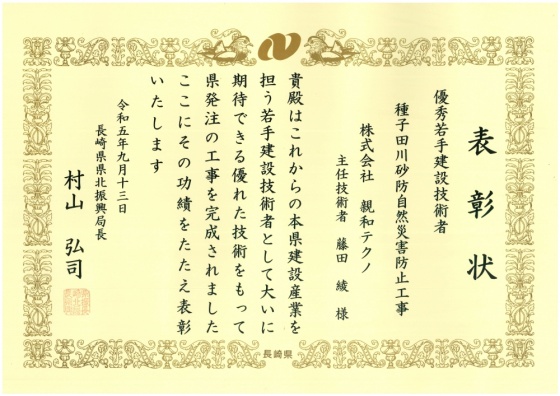 表彰状
優秀若手建設技術者
種子田川砂防自然災害防止工事
株式会社 親和テクノ
主任技術者 藤田 綾 様
貴殿はこれからの本県建設産業を
担う若手建設技術者として大いに
期待できる優れた技術をもって
県発注の工事を完成されました
ここにその功績をたたえ表彰
いたします
令和五年九月十三日
長崎県県北振興局長
村山 弘司
長崎県